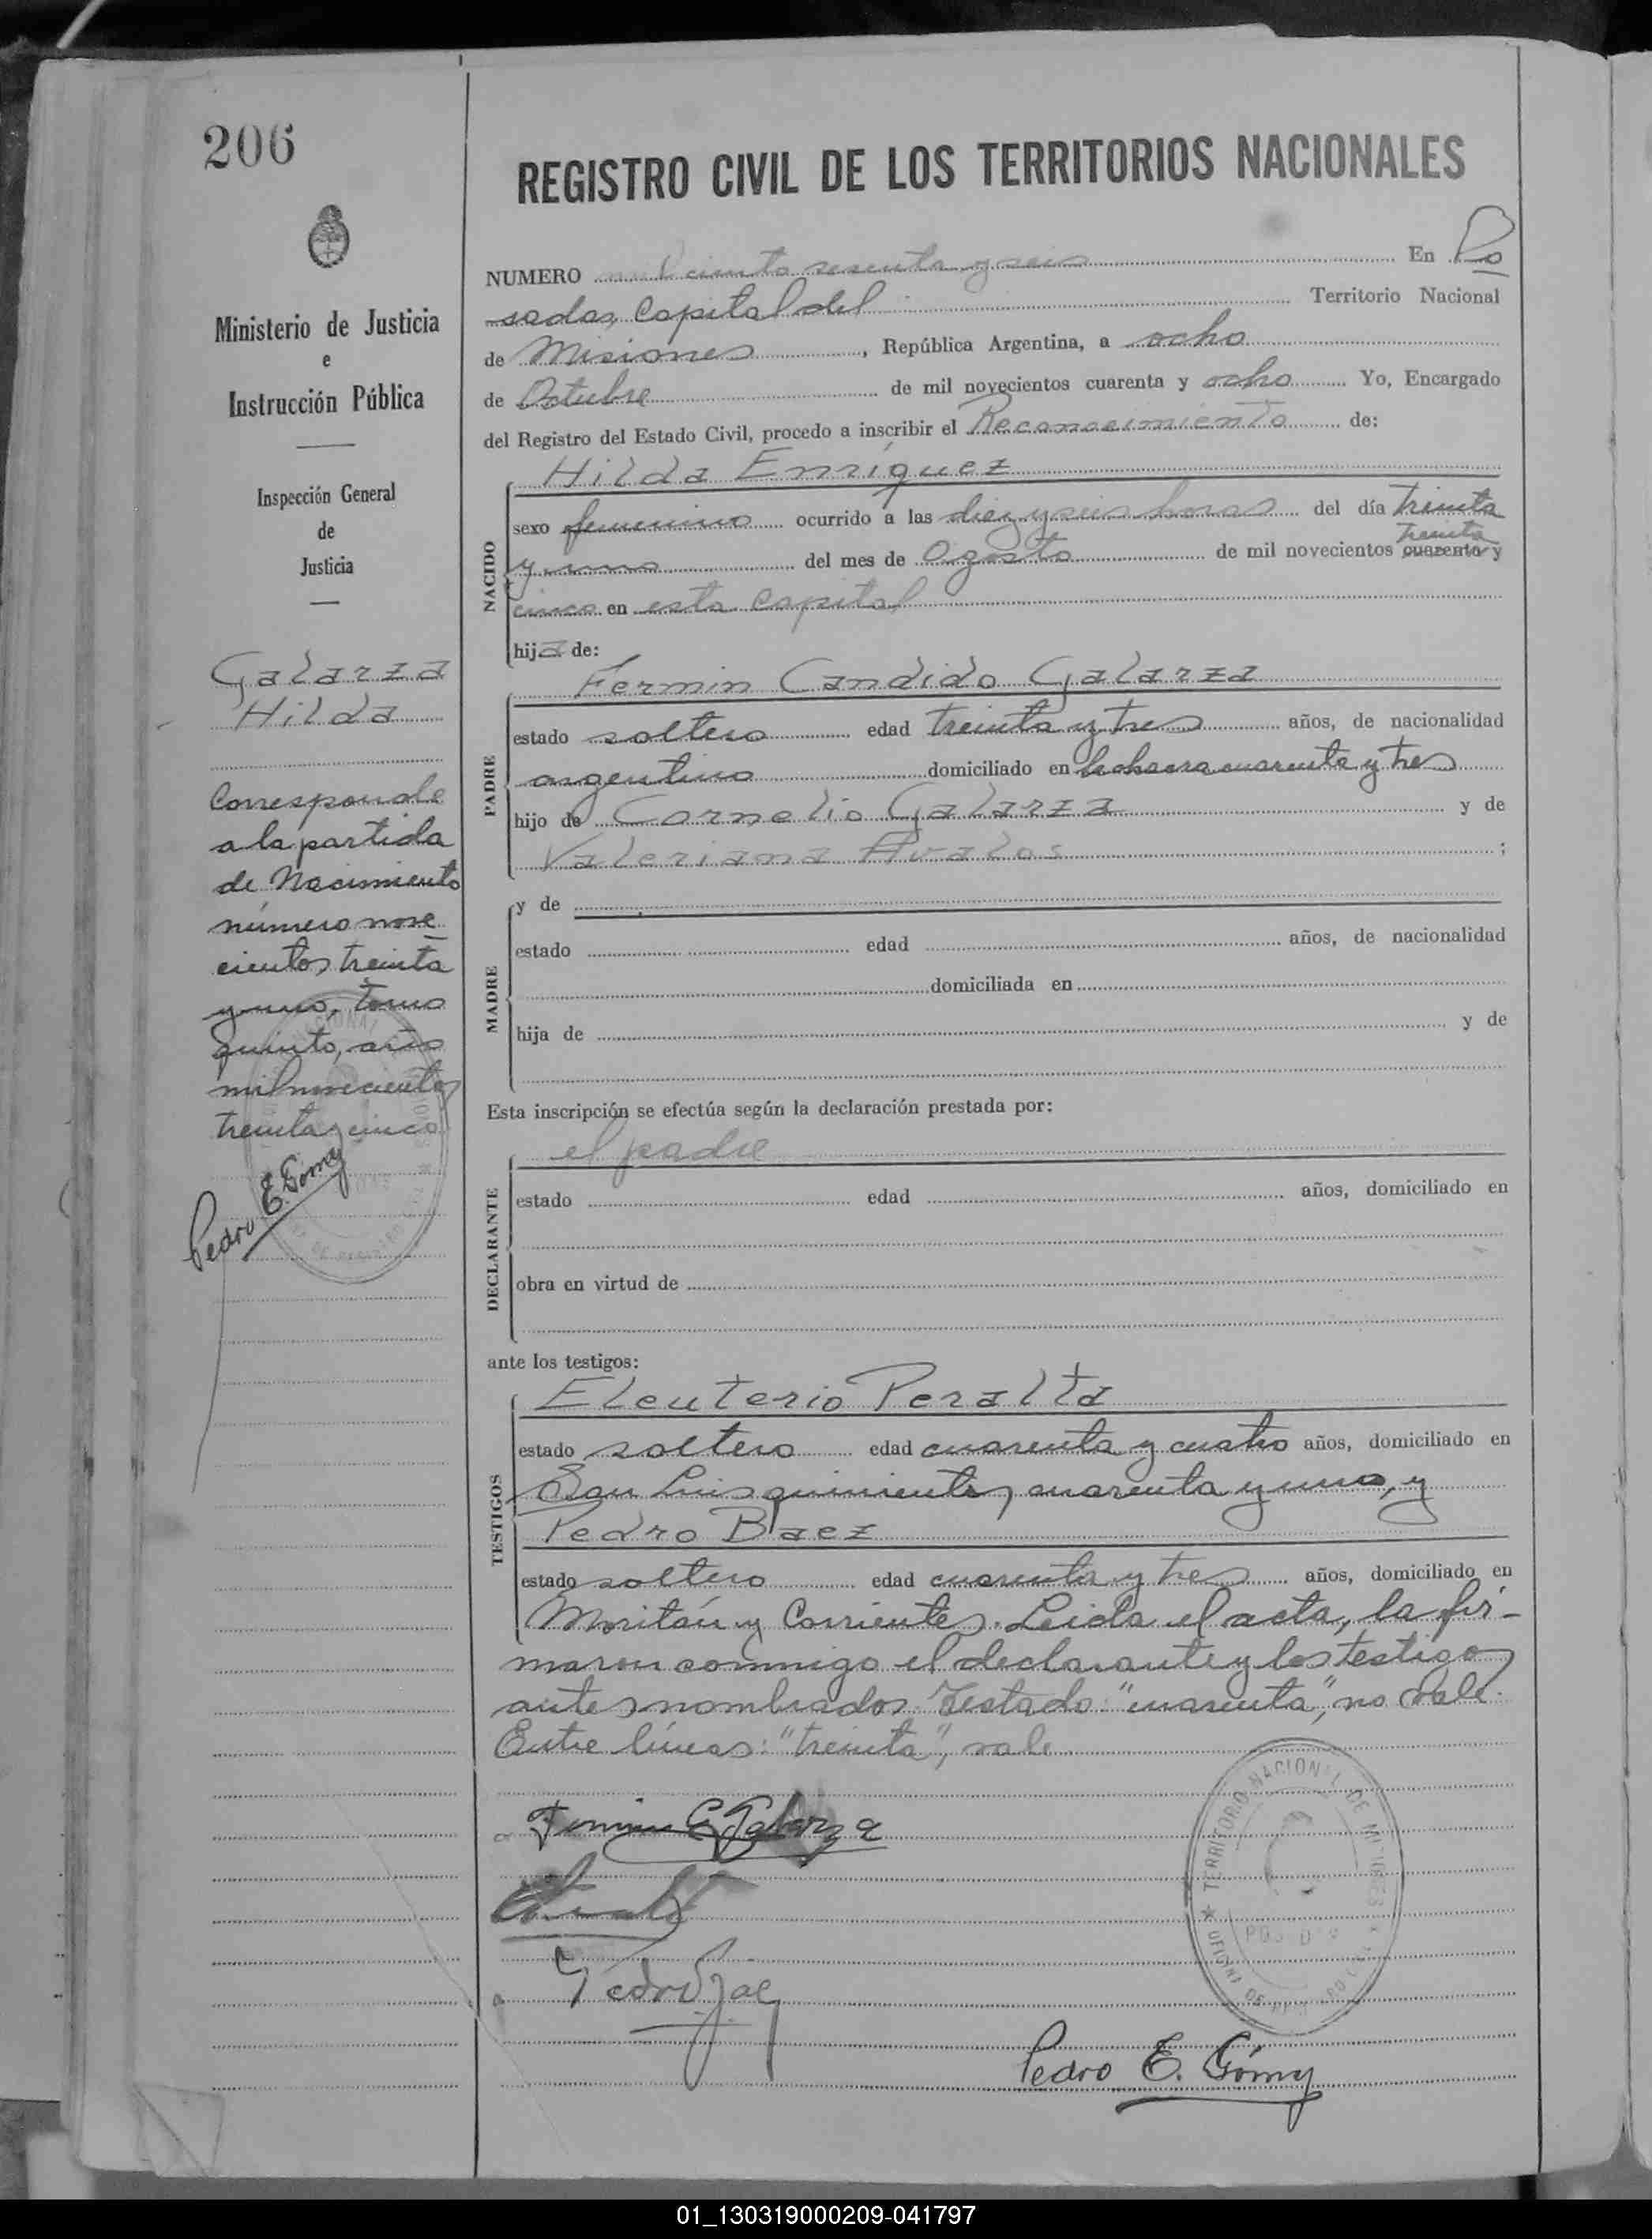 206
REGISTRO CIVIL DE LOS TERRITORIOS NACIONALES
Ministerio de Justicia
e
Instrucción Pública
Inspección General
de
Justicia
Galarza
Hilda
Corresponde
a la partida
de Nacimiento
número nove
cientos treinta
y uno, tomo
quinto, año
mil novecientos
treinta y cinco
Pedro E. Gómez
NUMERO ciento sesenta y seis En Po
sadas, Capital del Territorio Nacional
de Misiones, República Argentina, a ocho
de Octubre de mil novecientos cuarenta y ocho Yo, Encargado
del Registro del Estado Civil, procedo a inscribir el Reconocimiento de:
Hilda Enríquez
NACIDO
sexo femenino ocurrido a las diez y seis horas del día treinta
treinta
y uno del mes de Agosto de mil novecientos cuarenta y
cinco en esta Capital
hija de:
Fermin Candido Galarza
PADRE
estado soltero edad treinta y tres años, de nacionalidad
argentino domiciliado en la chacra cuarenta y tres
hijo de Cornelio Galarza y de
Valeriana Avalos ;
MADRE
y de
estado edad años, de nacionalidad
domiciliada en
hija de y de
Esta inscripción se efectúa según la declaración prestada por:
el padre
DECLARANTE
estado edad años, domiciliado en
obra en virtud de
ante los testigos:
Eleuterio Peralta
TESTIGOS
estado soltero edad cuarenta y cuatro años, domiciliado en
San Luis quinientos cuarenta y uno, y
Pedro Baez
estado soltero edad cuarenta y tres años, domiciliado en
Moritán y Corrientes. Leida el acta, la fir-
maron conmigo el declarante y los testigos
antes nombrados. Testado: "cuarenta", no vale.
Entre líneas: "treinta", vale.
Fermin C Galarza
TERRITORIO NACIONAL DE MISIONES
Pedro E. Gómez
01_130319000209-041797